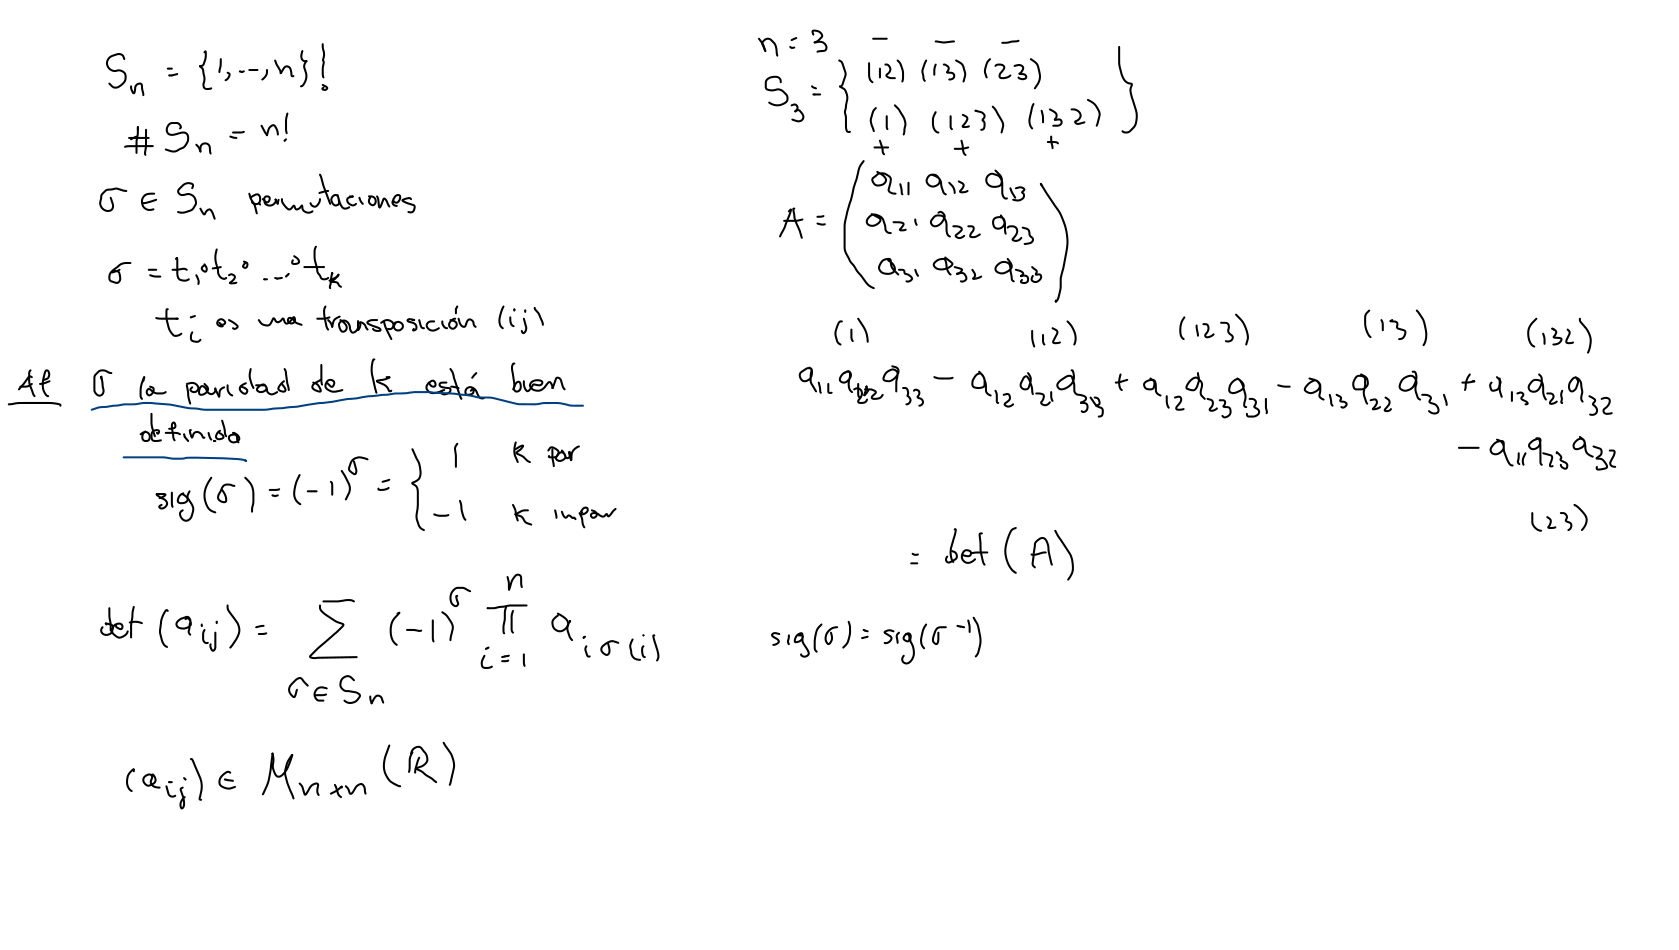 Sₙ = {1,--,n}!
# Sₙ = n!
σ ∈ Sₙ permutaciones
σ = t₁∘t₂∘ ...∘ tₖ
tᵢ es una transposición (ij)
Af σ la paridad de k está bien
definida
sig(σ) = (-1)^σ = { 1 k par
-1 k impar
det (aᵢⱼ) = ∑_{σ∈Sₙ} (-1)^σ ∏_{i=1}^{n} a_{iσ(i)}
(aᵢⱼ) ∈ M_{n×n} (ℝ)
n = 3 − − −
S₃ = { (12) (13) (23)
(1) (123) (132) }
+ + +
A = ( a₁₁ a₁₂ a₁₃
a₂₁ a₂₂ a₂₃
a₃₁ a₃₂ a₃₃ )
(1) (12) (123) (13) (132)
a₁₁a₂₂a₃₃ − a₁₂a₂₁a₃₃ + a₁₂a₂₃a₃₁ − a₁₃a₂₂a₃₁ + a₁₃a₂₁a₃₂
− a₁₁a₂₃a₃₂
(23)
= det (A)
sig(σ) = sig(σ⁻¹)